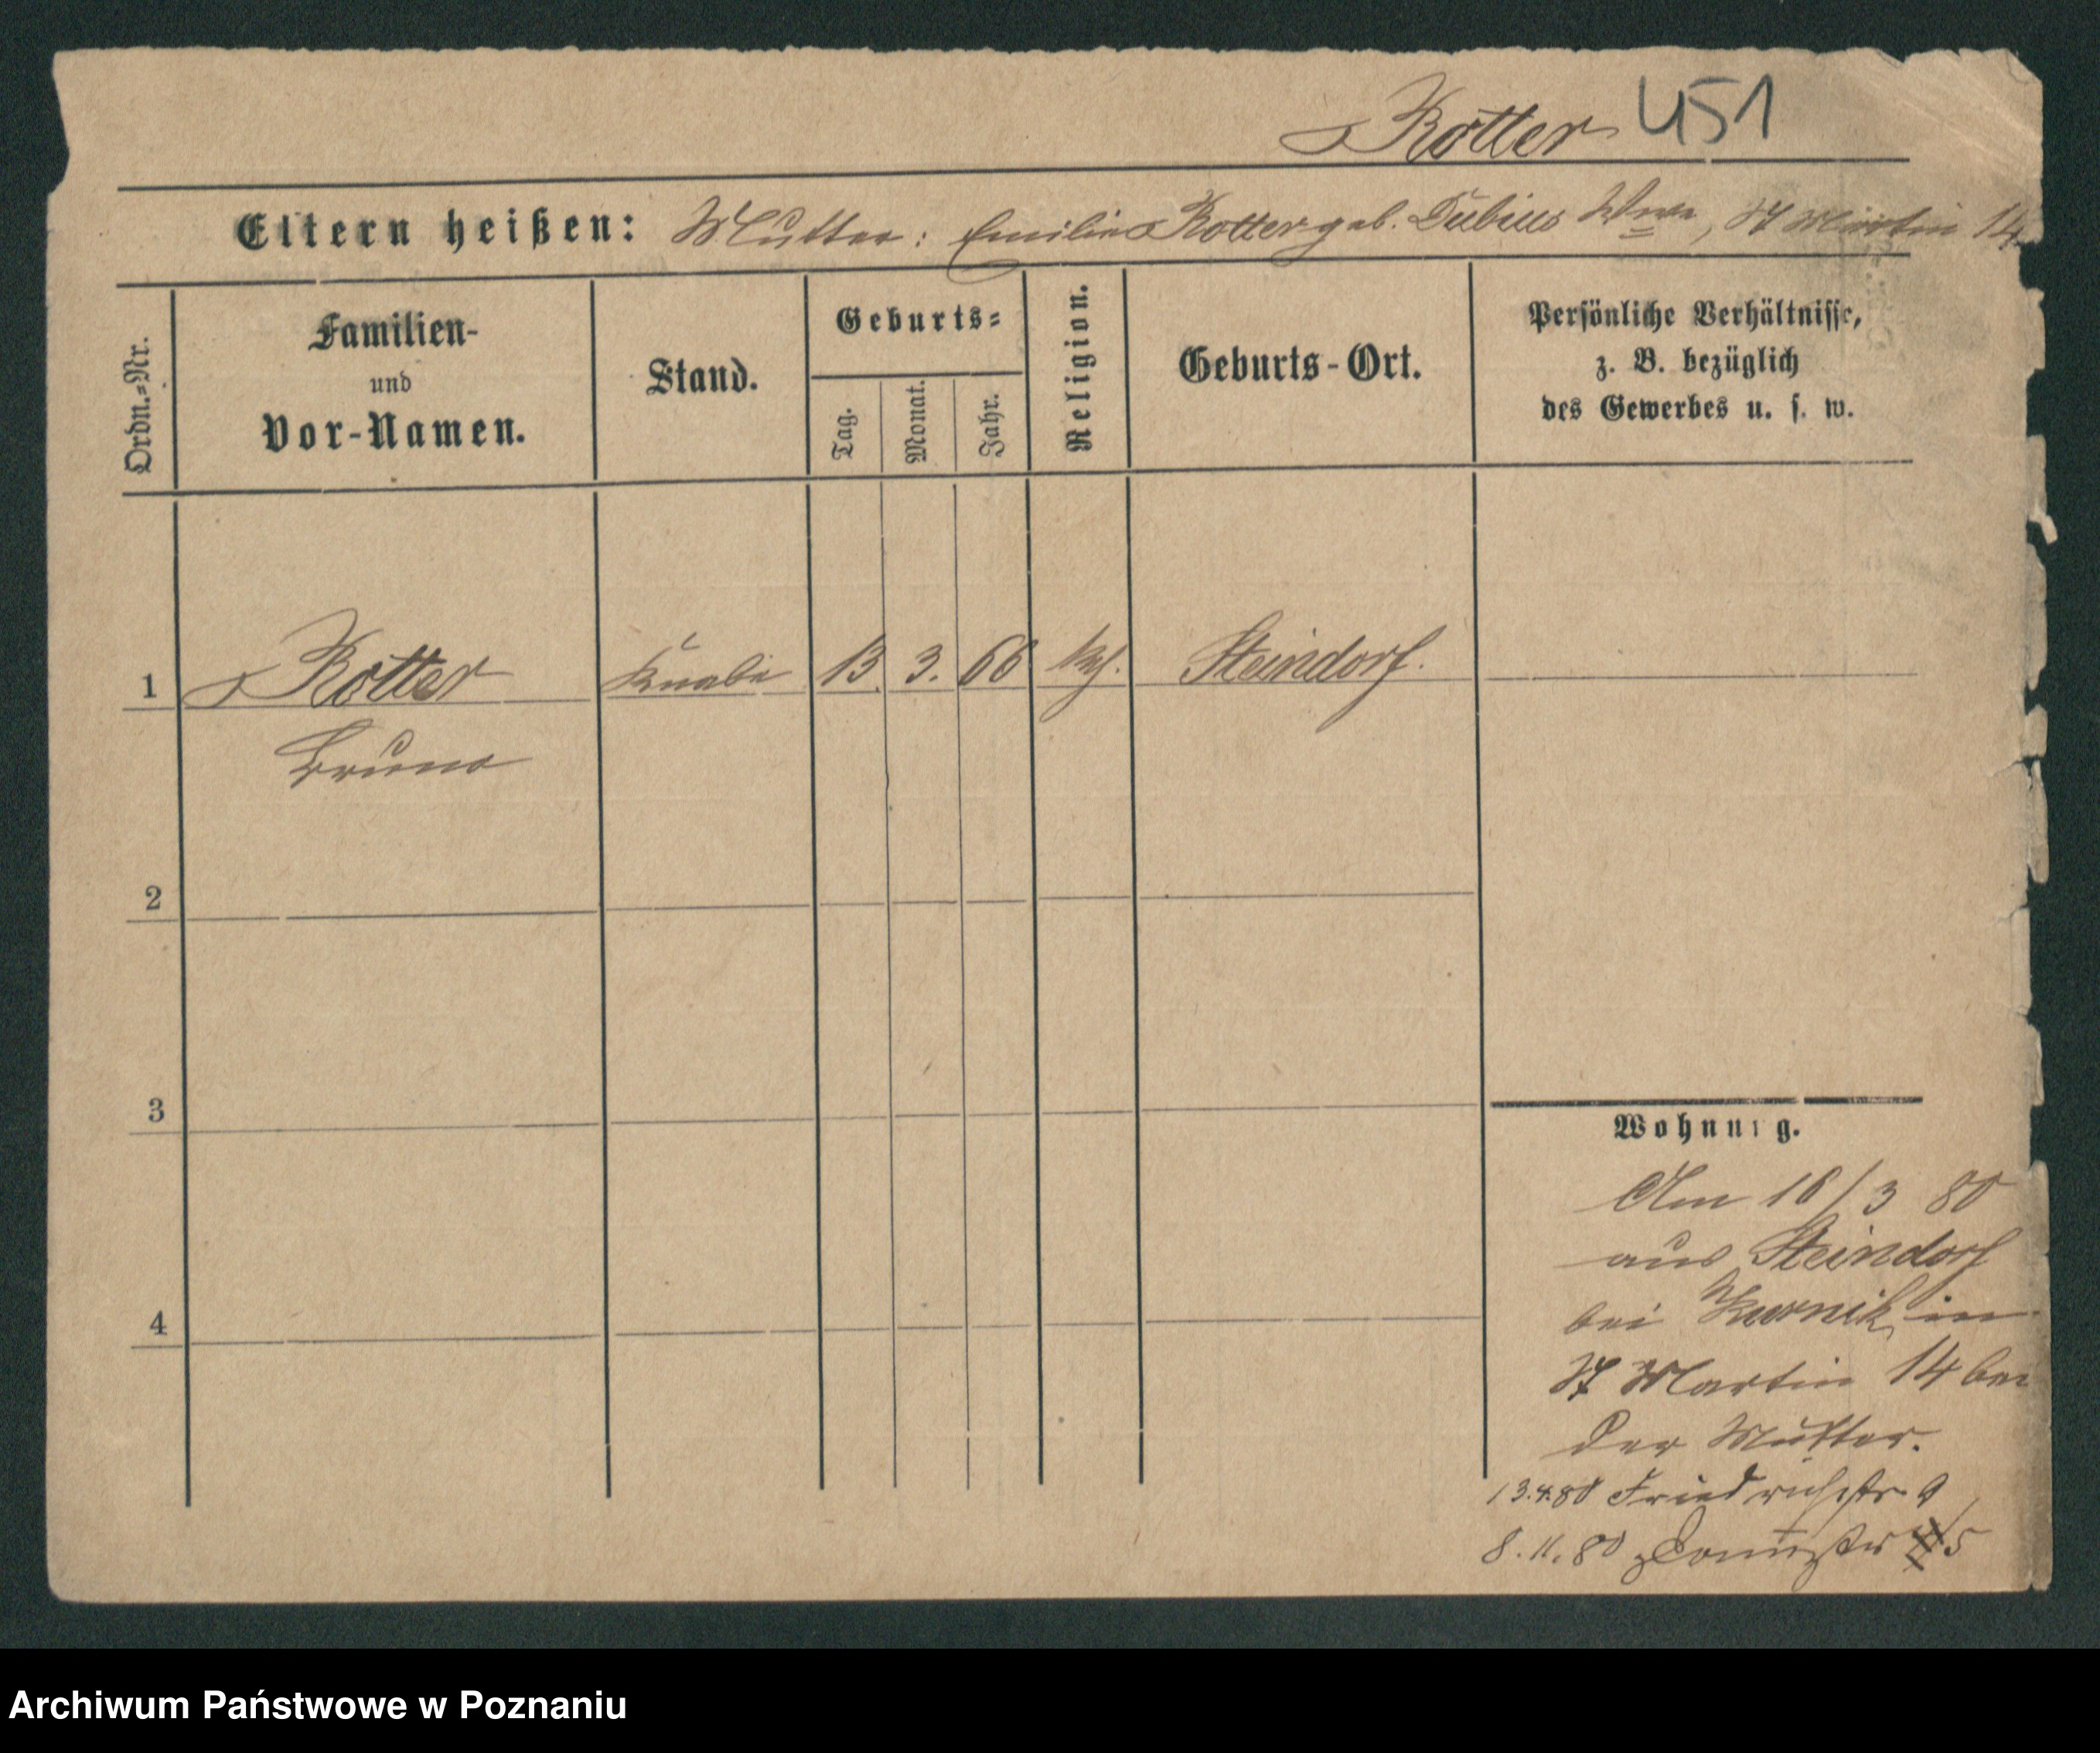 Rotter 451
Eltern heißen: Mutter: Emilie Rotter geb. Dubius Wwe, St Martin 14
Ordn.-Nr.
Familien-
und
Vor-Namen.
Stand.
Geburts-
Tag.
Monat.
Jahr.
Religion.
Geburts-Ort.
Persönliche Verhältnisse,
z. B. bezüglich
des Gewerbes u. s. w.
1 Rotter Knabe 13. 3. 66 Steindorf.
Bruno
2
3
4
Wohnung.
Am 16/3 80
aus Steindorf
bei Kurnik in
St Martin 14 bei
der Mutter.
13.4.80 Friedrichstr. 9
8.11.80 5
Archiwum Państwowe w Poznaniu